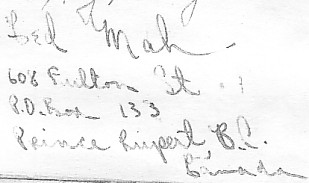 Ted Mah
608 Fulton St
P.O. Box 133
Prince Rupert B.C.
Canada